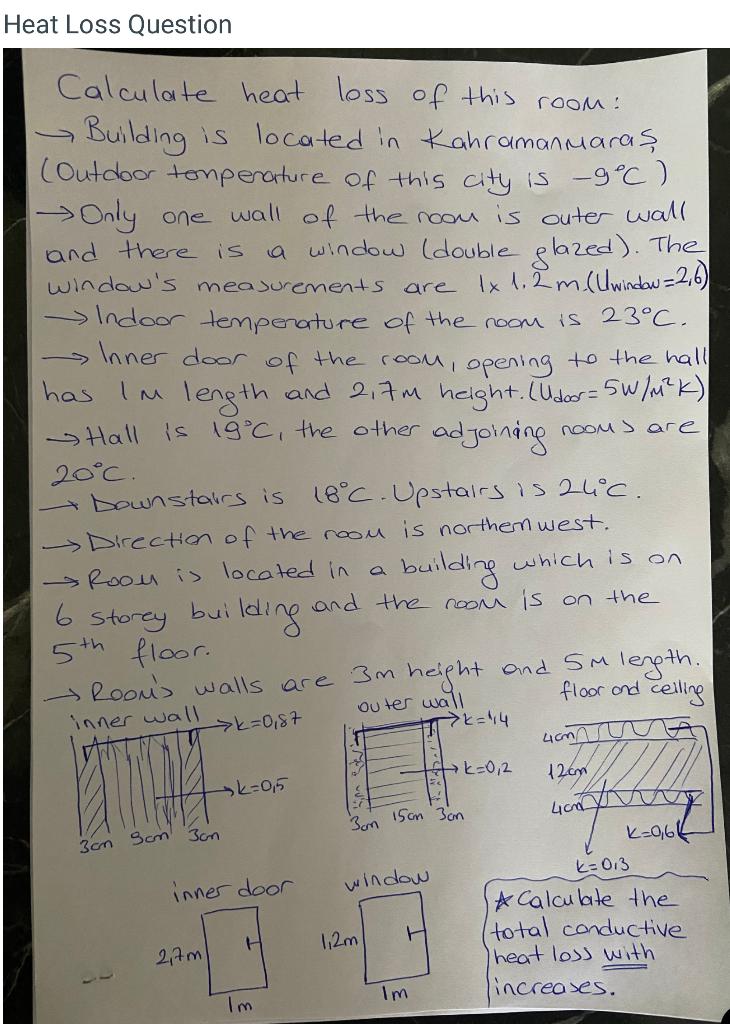 Heat Loss Question
Calculate heat loss of this room:
→ Building is located in Kahramanmaraş
(Outdoor temperature of this city is -9°C)
→ Only one wall of the room is outer wall
and there is a window (double glazed). The
window's measurements are 1x1.2m.(Uwindow=2,6)
→ Indoor temperature of the room is 23°C.
→ Inner door of the room, opening to the hall
has 1m length and 2,7m height.(Udoor=5W/m²K)
→ Hall is 19°C, the other adjoining rooms are
20°C.
→ Downstairs is 18°C. Upstairs is 24°C.
→ Direction of the room is northern west.
→ Room is located in a building which is on
6 storey building and the room is on the
5th floor.
→ Room's walls are 3m height and 5m length.
inner wall
k=0,87
k=0,5
3cm 9cm 3cm
outer wall
k=1,4
k=0,2
3cm 15cm 3cm
floor and ceiling
4cm
12cm
4cm
k=0,6
k=0,3
inner door
2,7m
1m
window
1,2m
1m
* Calculate the
total conductive
heat loss with
increases.